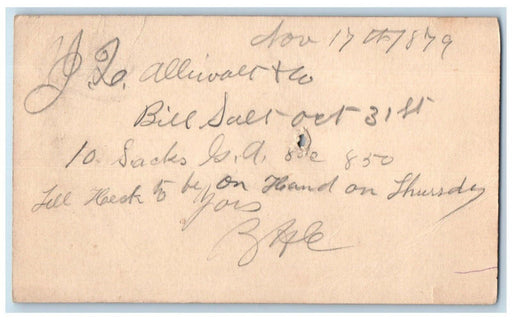 Nov 17th 1879
J. Q. Alliwalt & Co
Bill Salt Oct 31st
10 Sacks G.A. 85c 850
Tell Heck to be on Hand on Thursday
Yors